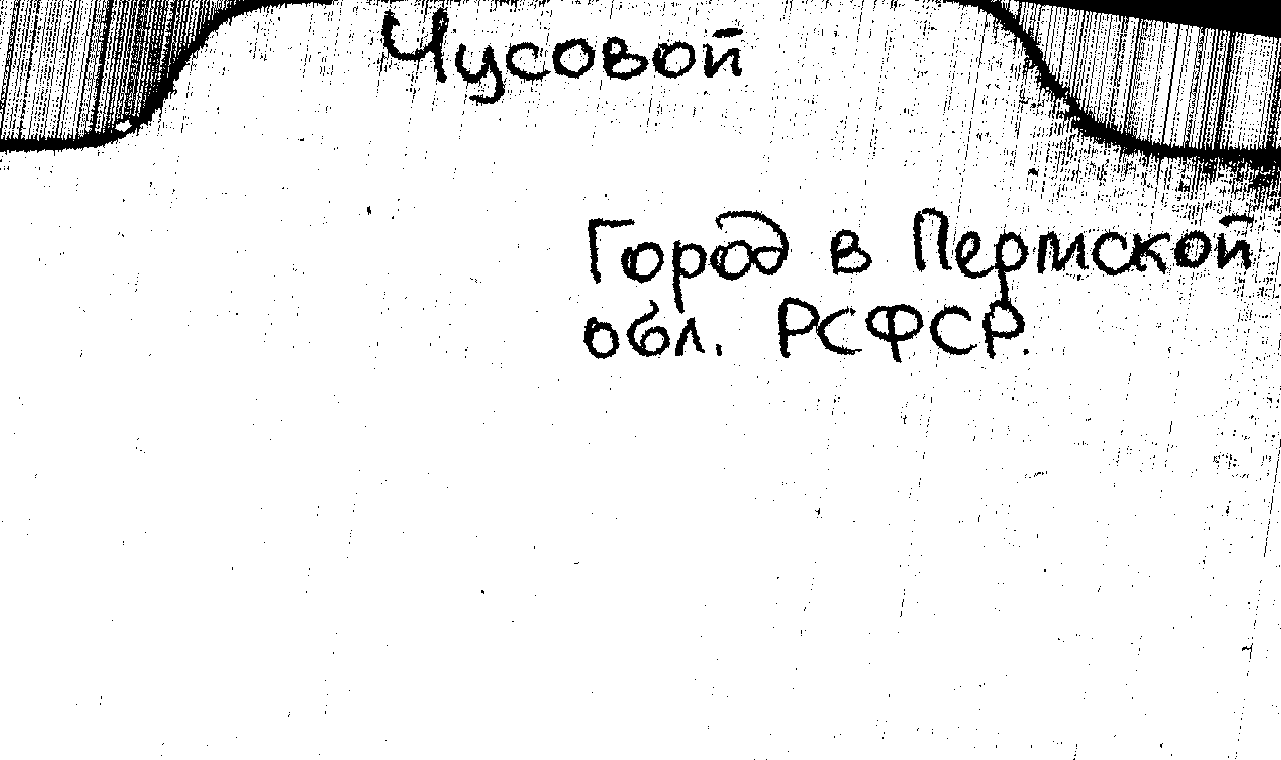 Чусовой
Город в Пермской
обл. РСФСР.